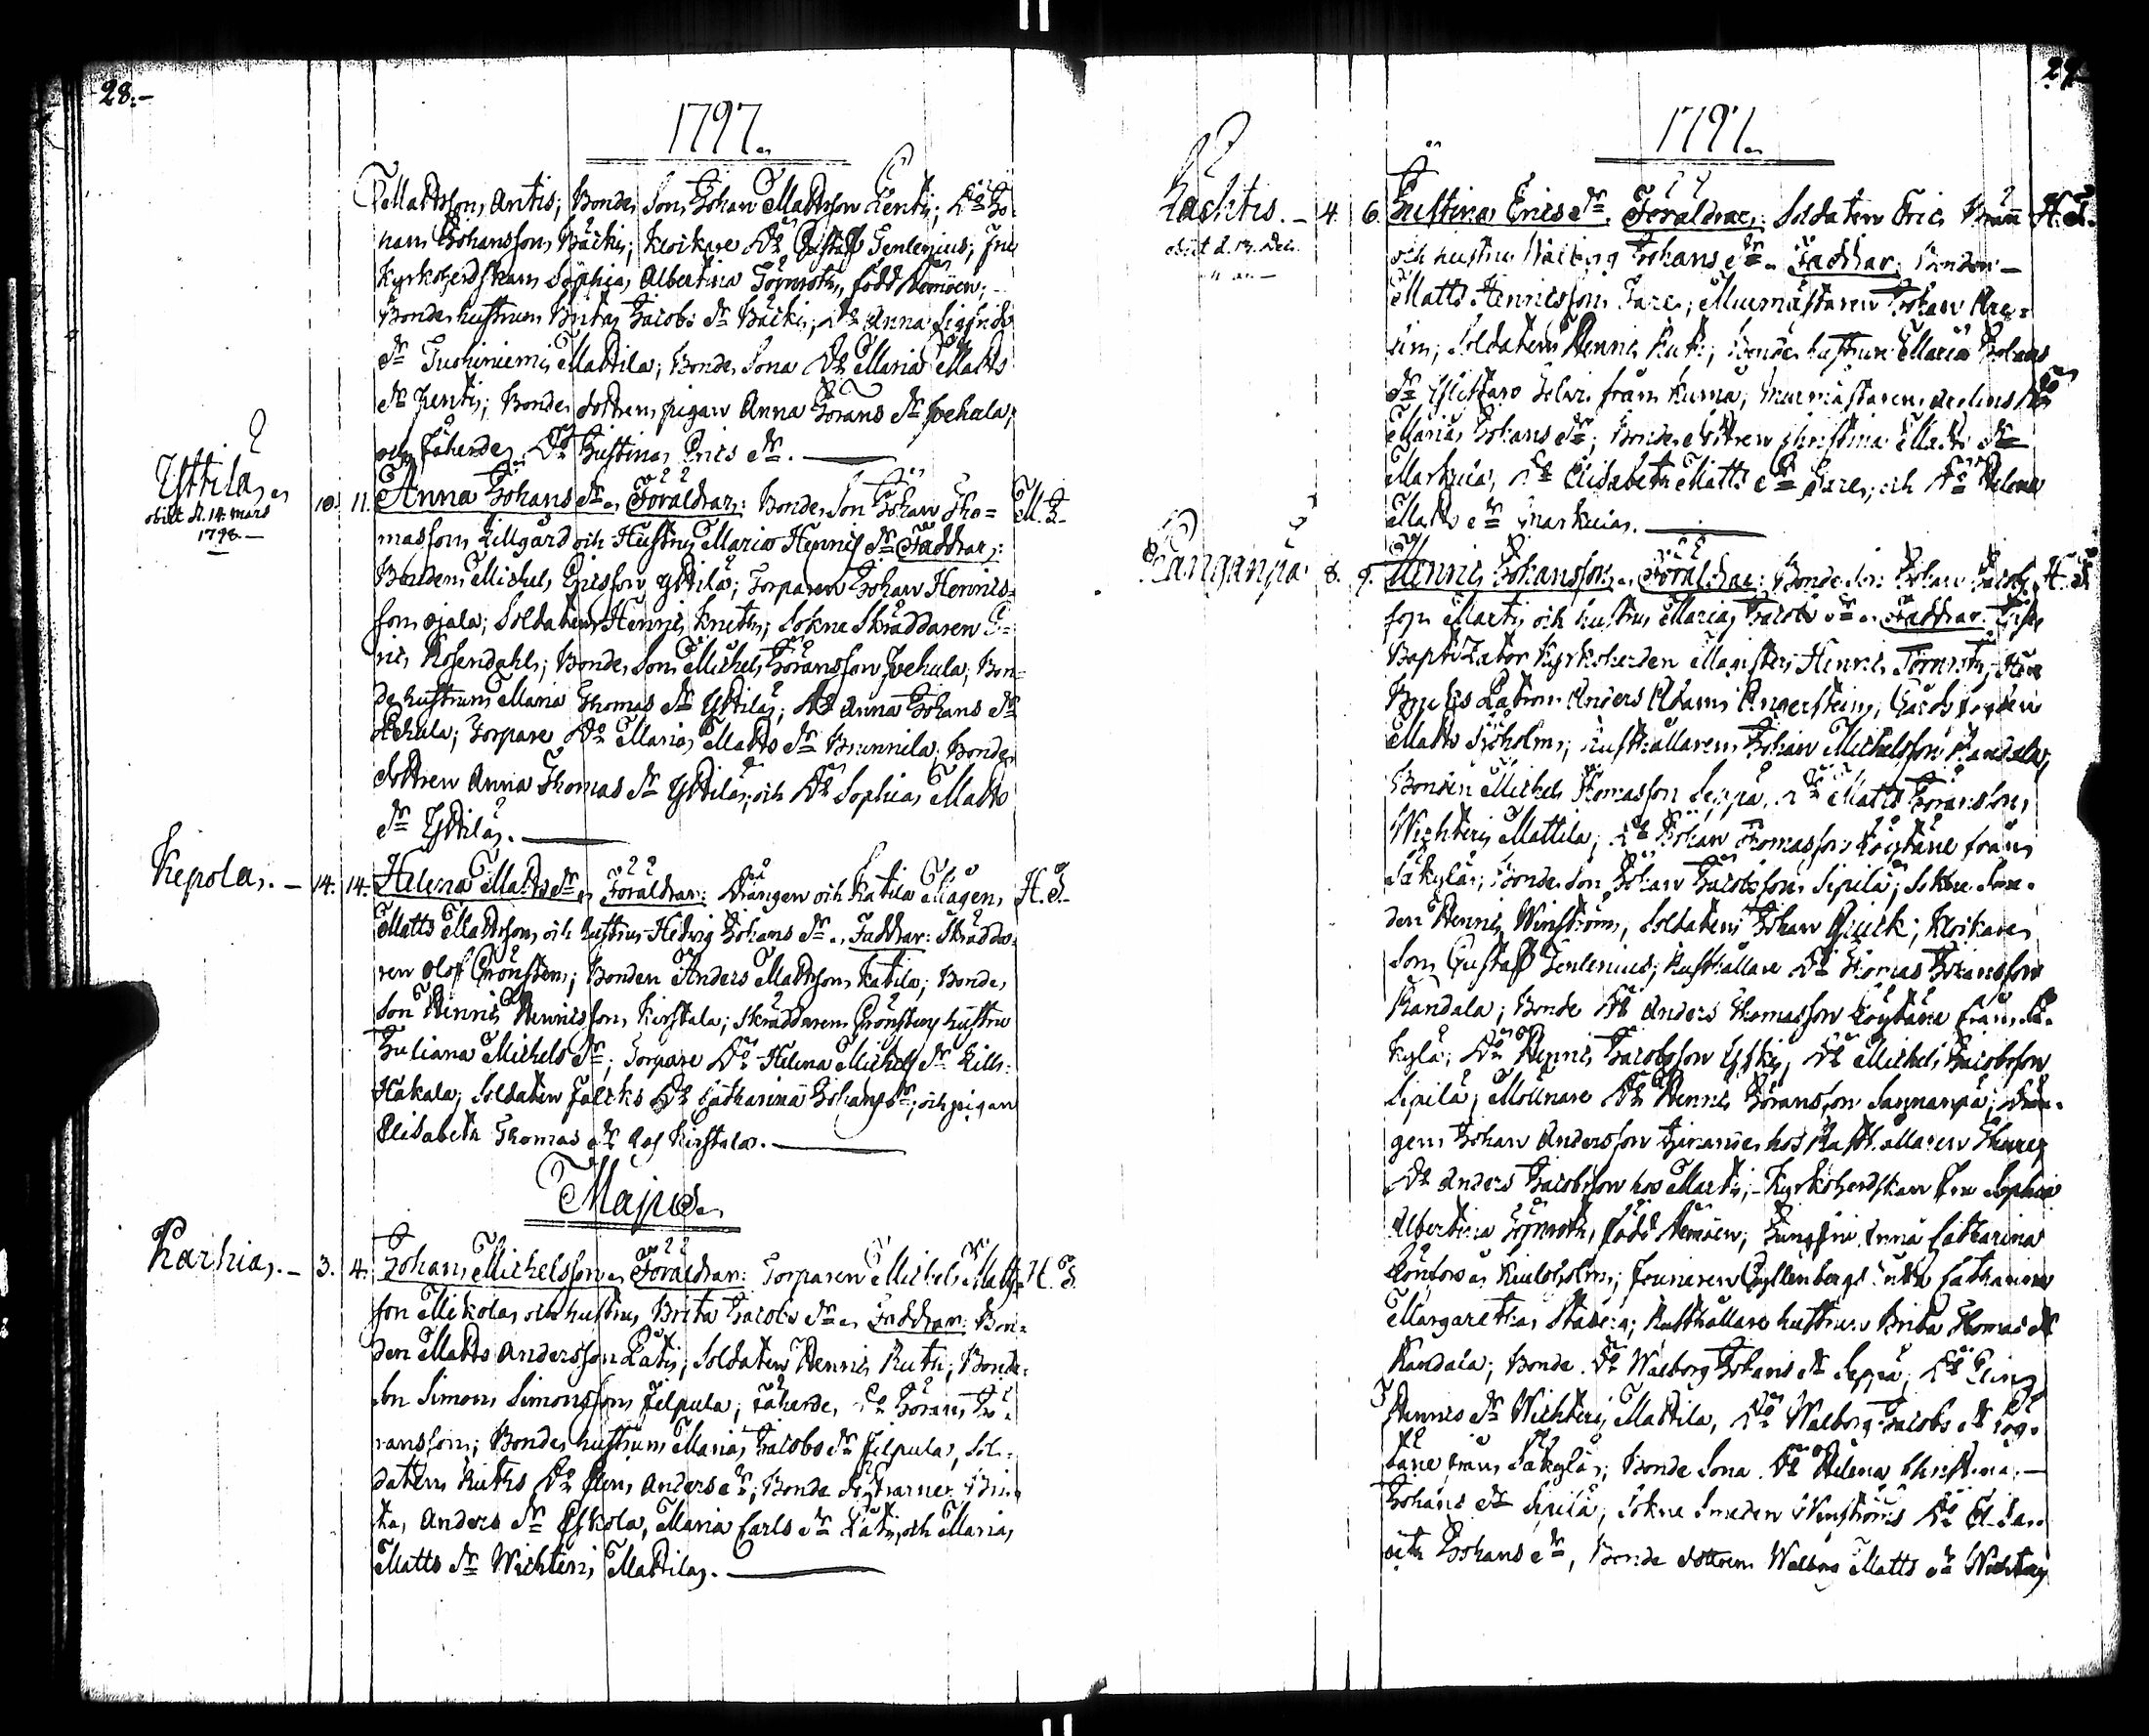 28.-
1797.
Mattsson Antis; Bonde Son Johan Mattsson Kenti; Do Jo=
han Johansson Bäcki; Klockare Do Gustaf Tenlenius; Fru
Kyrkoherdskan Sophia Albertina Törnroth, född Nemoen;
Bonde hustrun Brita Jacobs dr Bäcki; Do Anna Sigfrids
dr Tuohiniemi Mattila; Bonde Sona Do Maria Matts
dr Kenti; Bonde dottren pigan Anna Görans dr Joehala;
och Fäherde Do Justina Erics dr.
Yttilä
obiit d. 14. Mars
1798.
10. 11. Anna Johans dr. Föräldrar: Bonde Son Johan Tho= M. J.
masson Lillgård och Hustru Maria Henrics dr Faddrar:
Bonden Michel Ericsson Yttilä; Torparen Johan Henrics=
son Ojala; Soldaten Henric Kneth; Sokne Skräddaren E=
ric Rosendahl; Bonde Son Michel Göransson Joehala; Bon=
de hustrun Maria Thomas dr Yttilä; Do Anna Johans dr
Torpare Do Maria Matts dr Brunnila; Bonde
dottren Anna Thomas dr Yttilä; och Do Sophia Matts
dr Yttilä.
Kepola. - 14. 14. Helena Matts dr. Föräldrar: Drängen och Katila Mågen H. T.
Matts Mattsson och hustru Hedvig Johans dr. Faddrar: Skrädda=
ren Olof Grönsten; Bonden Anders Mattsson Katila; Bonde
Son Henric Henricsson Kirstala; Skräddaren Grönstens hustru
Juliana Michels dr; Torpare Do Helena Michels dr Lill=
Hakala; Soldaten Falcks Do Catharina Johans dr; och pigan
Elisabeth Thomas dr Kirstala.
Majus.
Karhia. - 3. 4. Johan Michelsson. Föräldrar: Torparen Michel Matts= H. T.
son Mikola och hustru Brita Jacobs dr. Faddrar: Bon=
den Matts Andersson Lati; Soldaten Henric Ruth; Bonde
Son Simon Simonsson Filpula; Fäherde Do Göran Gö=
ransson; Bonde hustrun Maria Jacobs dr Filpula, Sol=
daten Ruths Do Elin Anders dr; Bonde Döttrarne Bri=
ta Anders dr Eskola, Maria Carls dr Lati, och Maria
Matts dr Wichteri Mattila.
29.
1797.
- 4. 6. Justina Erics dr. Föräldrar: Soldaten Eric Brann H. T.
obiit d. 13. Dec.
och hustru Walborg Johans dr. Faddrar: Bonden
Matts Henricsson Fare; Murmästaren Johan Are=
lin; Soldaten Henric Ruth; Bonde hustrun Maria Johans
dr från Kumo, Murmästaren Arelins Do
Maria Johans dr; Bonde dottren Christina Matts dr
Markula, Do Elisabeth Matts dr Fare; och Do Helena
Matts dr Markula.
Kanganpä 8. 9. Henric Johansson. Föräldrar: Bonde Son Johan Jacobs= H. T.
son Marti och hustru Maria Jacobs dr. Faddrar:
Baptizator Kyrkoherden Magister Henric Törnroth,
Bruks Patron Anders Adam Angerstein,
Matts Sjöholm; Rusthållaren Johan Michelsson Kandala;
Bonden Michel Thomasson Seppä, Do Matts Göransson
Wichteri Mattila; Do Johan Thomasson Löytäne från
Säkylä; Bonde Son Johan Jacobsson Sipilä; Sokne Sme=
den Henric Winström, Soldaten Johan Quick; Klockare
Son Gustaf Tenlenius; Rusthållare Do Thomas Johansson
Kandala; Bonde Do Anders Thomasson Löytäne från Sä=
kylä; Do Henric Jacobsson Yski, Do Michel Jacobsson
Sipilä; Möllnare Do Henric Göransson Sagnanpä; Drän=
gen Johan Andersson hos Rusthållaren
Do Anders Jacobsson hos Marti; Kyrkoherdskan Fru Sophia
Albertina Törnroth, född Nemoen; Jungfru Anna Catharina
Gyllenbergs Enka Catharina
Margaretha Staberg; Rusthållare hustrun Brita Thomas dr
Kandala; Bonde Do Walborg Johans dr Seppä; Do Elin
Henrics dr Wichteri Mattila, Do Walborg Jacobs dr Löy=
täne från Säkylä; Bonde Sona Do Helena Christina
Johans dr Sipilä; Sokne Smeden Winströms Do Elisa=
beth Johans dr, Bonde dottren Walborg Matts dr Wichteri